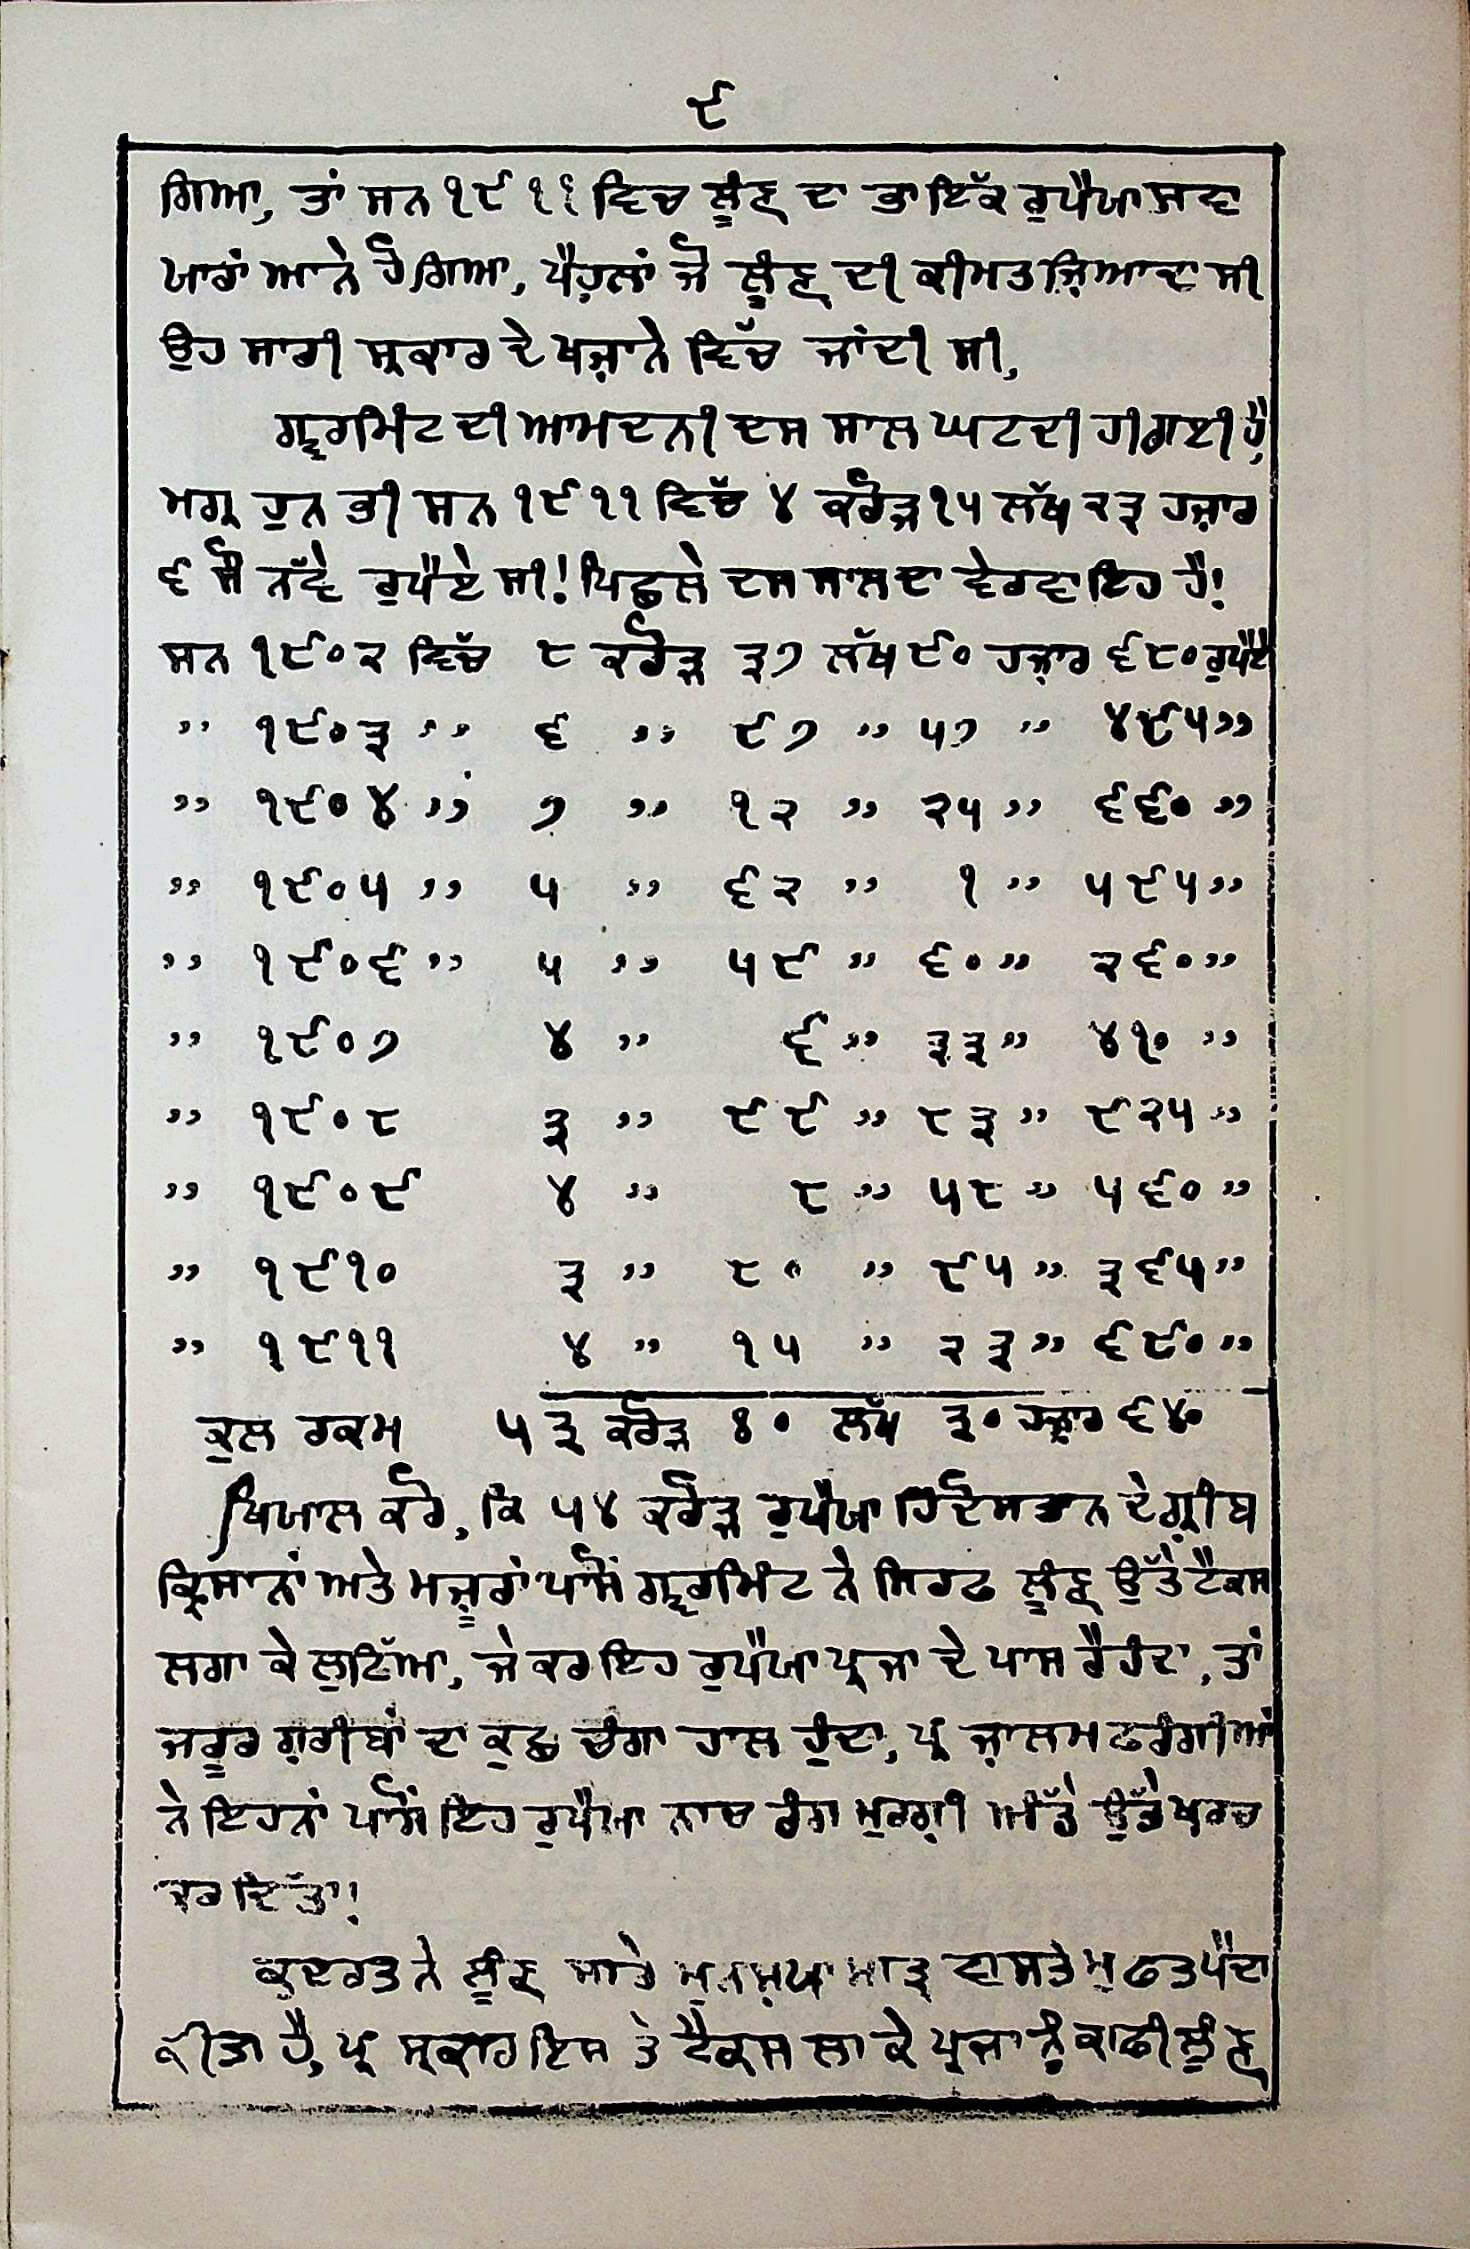 ੯
ਗਿਆ, ਤਾਂ ਸਨ ੧੯੧੧ ਵਿਚ ਲੂੰਣ ਦਾ ਭਾ ਇੱਕ ਰੁਪੈਯਾ ਸਵਾ
ਯਾਰਾਂ ਆਨੇ ਹੋਗਿਆ, ਪੈਹਲਾਂ ਜੋ ਲੂੰਣ ਦੀ ਕੀਮਤ ਜ਼ਿਆਦਾ ਸੀ
ਉਹ ਸਾਰੀ ਸ੍ਰਕਾਰ ਦੇ ਖਜ਼ਾਨੇ ਵਿੱਚ ਜਾਂਦੀ ਸੀ,
ਗਵ੍ਰਮਿੰਟ ਦੀ ਆਮਦਨੀ ਦਸ ਸਾਲ ਘਟਦੀ ਹੀ ਗਈ ਹੈ,
ਮਗ੍ਰ ਹੁਨ ਭੀ ਸਨ ੧੯੧੧ ਵਿੱਚ ੪ ਕਰੋੜ ੧੫ ਲੱਖ ੨੩ ਹਜ਼ਾਰ
੬ ਸੌ ਨੱਵੇ ਰੁਪੈਏ ਸੀ! ਪਿਛਲੇ ਦਸ ਸਾਲ ਦਾ ਵੇਰਵਾ ਇਹ ਹੈ!
ਸਨ ੧੯੦੨ ਵਿੱਚ ੮ ਕਰੋੜ ੩੭ ਲੱਖ ੯੦ ਹਜ਼ਾਰ ੬੮੦ ਰੁਪੈਏ
" ੧੯੦੩ " ੬ " ੯੭ " ੫੭ " ੪੯੫ "
" ੧੯੦੪ " ੭ " ੧੨ " ੨੫ " ੬੬੦ "
" ੧੯੦੫ " ੫ " ੬੨ " ੧ " ੫੯੫ "
" ੧੯੦੬ " ੫ " ੫੯ " ੬੦ " ੨੬੦ "
" ੧੯੦੭ ੪ " ੬ " ੩੩ " ੪੧੦ "
" ੧੯੦੮ ੩ " ੯੯ " ੮੩ " ੯੨੫ "
" ੧੯੦੯ ੪ " ੮ " ੫੮ " ੫੬੦ "
" ੧੯੧੦ ੩ " ੮੦ " ੯੫ " ੩੬੫ "
" ੧੯੧੧ ੪ " ੧੫ " ੨੩ " ੬੯੦ "
ਕੁਲ ਰਕਮ ੫੩ ਕਰੋੜ ੪੦ ਲੱਖ ੩੦ ਹਜ਼ਾਰ ੬੪੦
ਖਿਯਾਲ ਕਰੋ, ਕਿ ੫੪ ਕਰੋੜ ਰੁਪੈਯਾ ਹਿੰਦੋਸਤਾਨ ਦੇ ਗ੍ਰੀਬ
ਕ੍ਰਿਸਾਨਾਂ ਅਤੇ ਮਜ਼ੂਰਾਂ ਪਾਸੋਂ ਗਵ੍ਰਮਿੰਟ ਨੇ ਸਿਰਫ ਲੂੰਣ ਉੱਤੇ ਟੈਕਸ
ਲਗਾ ਕੇ ਲੁਟਿੱਆ, ਜੇਕਰ ਇਹ ਰੁਪੈਯਾ ਪ੍ਰਜਾ ਦੇ ਪਾਸ ਰੈਹੰਦਾ, ਤਾਂ
ਜਰੂਰ ਗ਼ਰੀਬਾਂ ਦਾ ਕੁਛ ਚੰਗਾ ਹਾਲ ਹੁੰਦਾ, ਪ੍ਰ ਜ਼ਾਲਮ ਫਰੰਗੀਆਂ
ਨੇ ਇਹਨਾਂ ਪਾਸੋਂ ਇਹ ਰੁਪੈਯਾ ਨਾਚ ਰੰਗ ਮੁਰਗ਼ੀ ਅੰਡੇ ਉੱਤੇ ਖਰਚ
ਕਰ ਦਿੱਤਾ!
ਕੁਦਰਤ ਨੇ ਲੂੰਣ ਸਾਰੇ ਮੁਨਸ਼ਯ ਮਾਤ੍ਰ ਵਾਸਤੇ ਮੁਫਤ ਪੈਦਾ
ਕੀਤਾ ਹੈ, ਪ੍ਰ ਸ੍ਰਕਾਰ ਇਸ ਤੇ ਟੈਕਸ ਲਾ ਕੇ ਪ੍ਰਜਾ ਨੂੰ ਕਾਫੀ ਲੂੰਣ